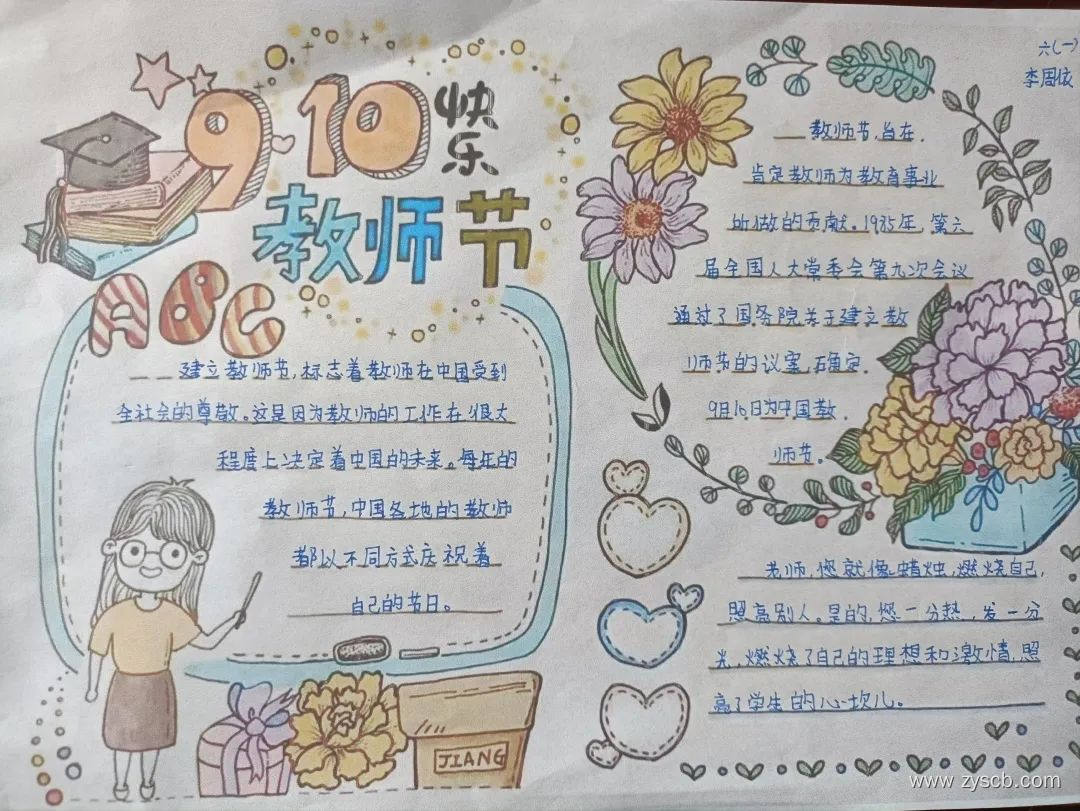 9.10
快乐
教师节
ABC
建立教师节,标志着教师在中国受到
全社会的尊敬。这是因为教师的工作在很大
程度上决定着中国的未来。每年的
教师节,中国各地的教师
都以不同方式庆祝着
自己的节日。
JIANG
六(一)
李周依
教师节,旨在
肯定教师为教育事业
所做的贡献。1985年,第六
届全国人大常委会第九次会议
通过了国务院关于建立教
师节的议案,确定
9月10日为中国教
师节。
老师,您就像蜡烛,燃烧自己,
照亮别人。是的,您一分热,发一分
光,燃烧了自己的理想和激情,照
亮了学生的心坎儿。
www.zyscb.com